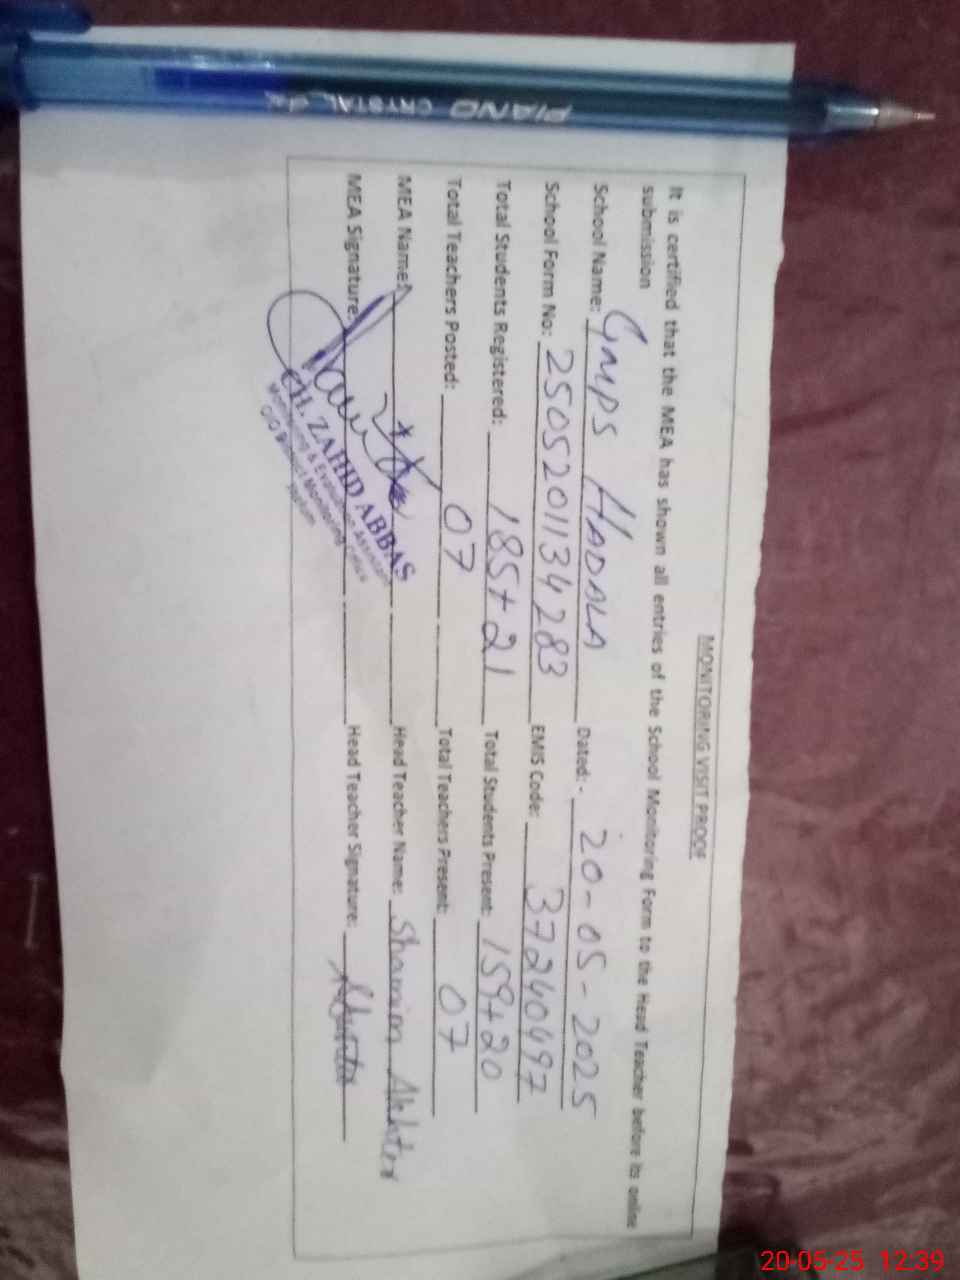 PIANO CRYSTAL
MONITORING VISIT PROOF
It is certified that the MEA has shown all entries of the School Monitoring Form to the Head Teacher before its online
submission
School Name: GMPS HADALA Dated:- 20-05-2025
School Form No: 2505201134283 EMIS Code: 37240497
Total Students Registered: 185+21 Total Students Present: 159+20
Total Teachers Posted: 07 Total Teachers Present: 07
MEA Name: Head Teacher Name: Shamim Akhter
MEA Signature: Head Teacher Signature:
CH. ZAHID ABBAS
Monitoring & Evaluation Assistant
O/O District Monitoring Office
20-05-25 12:39